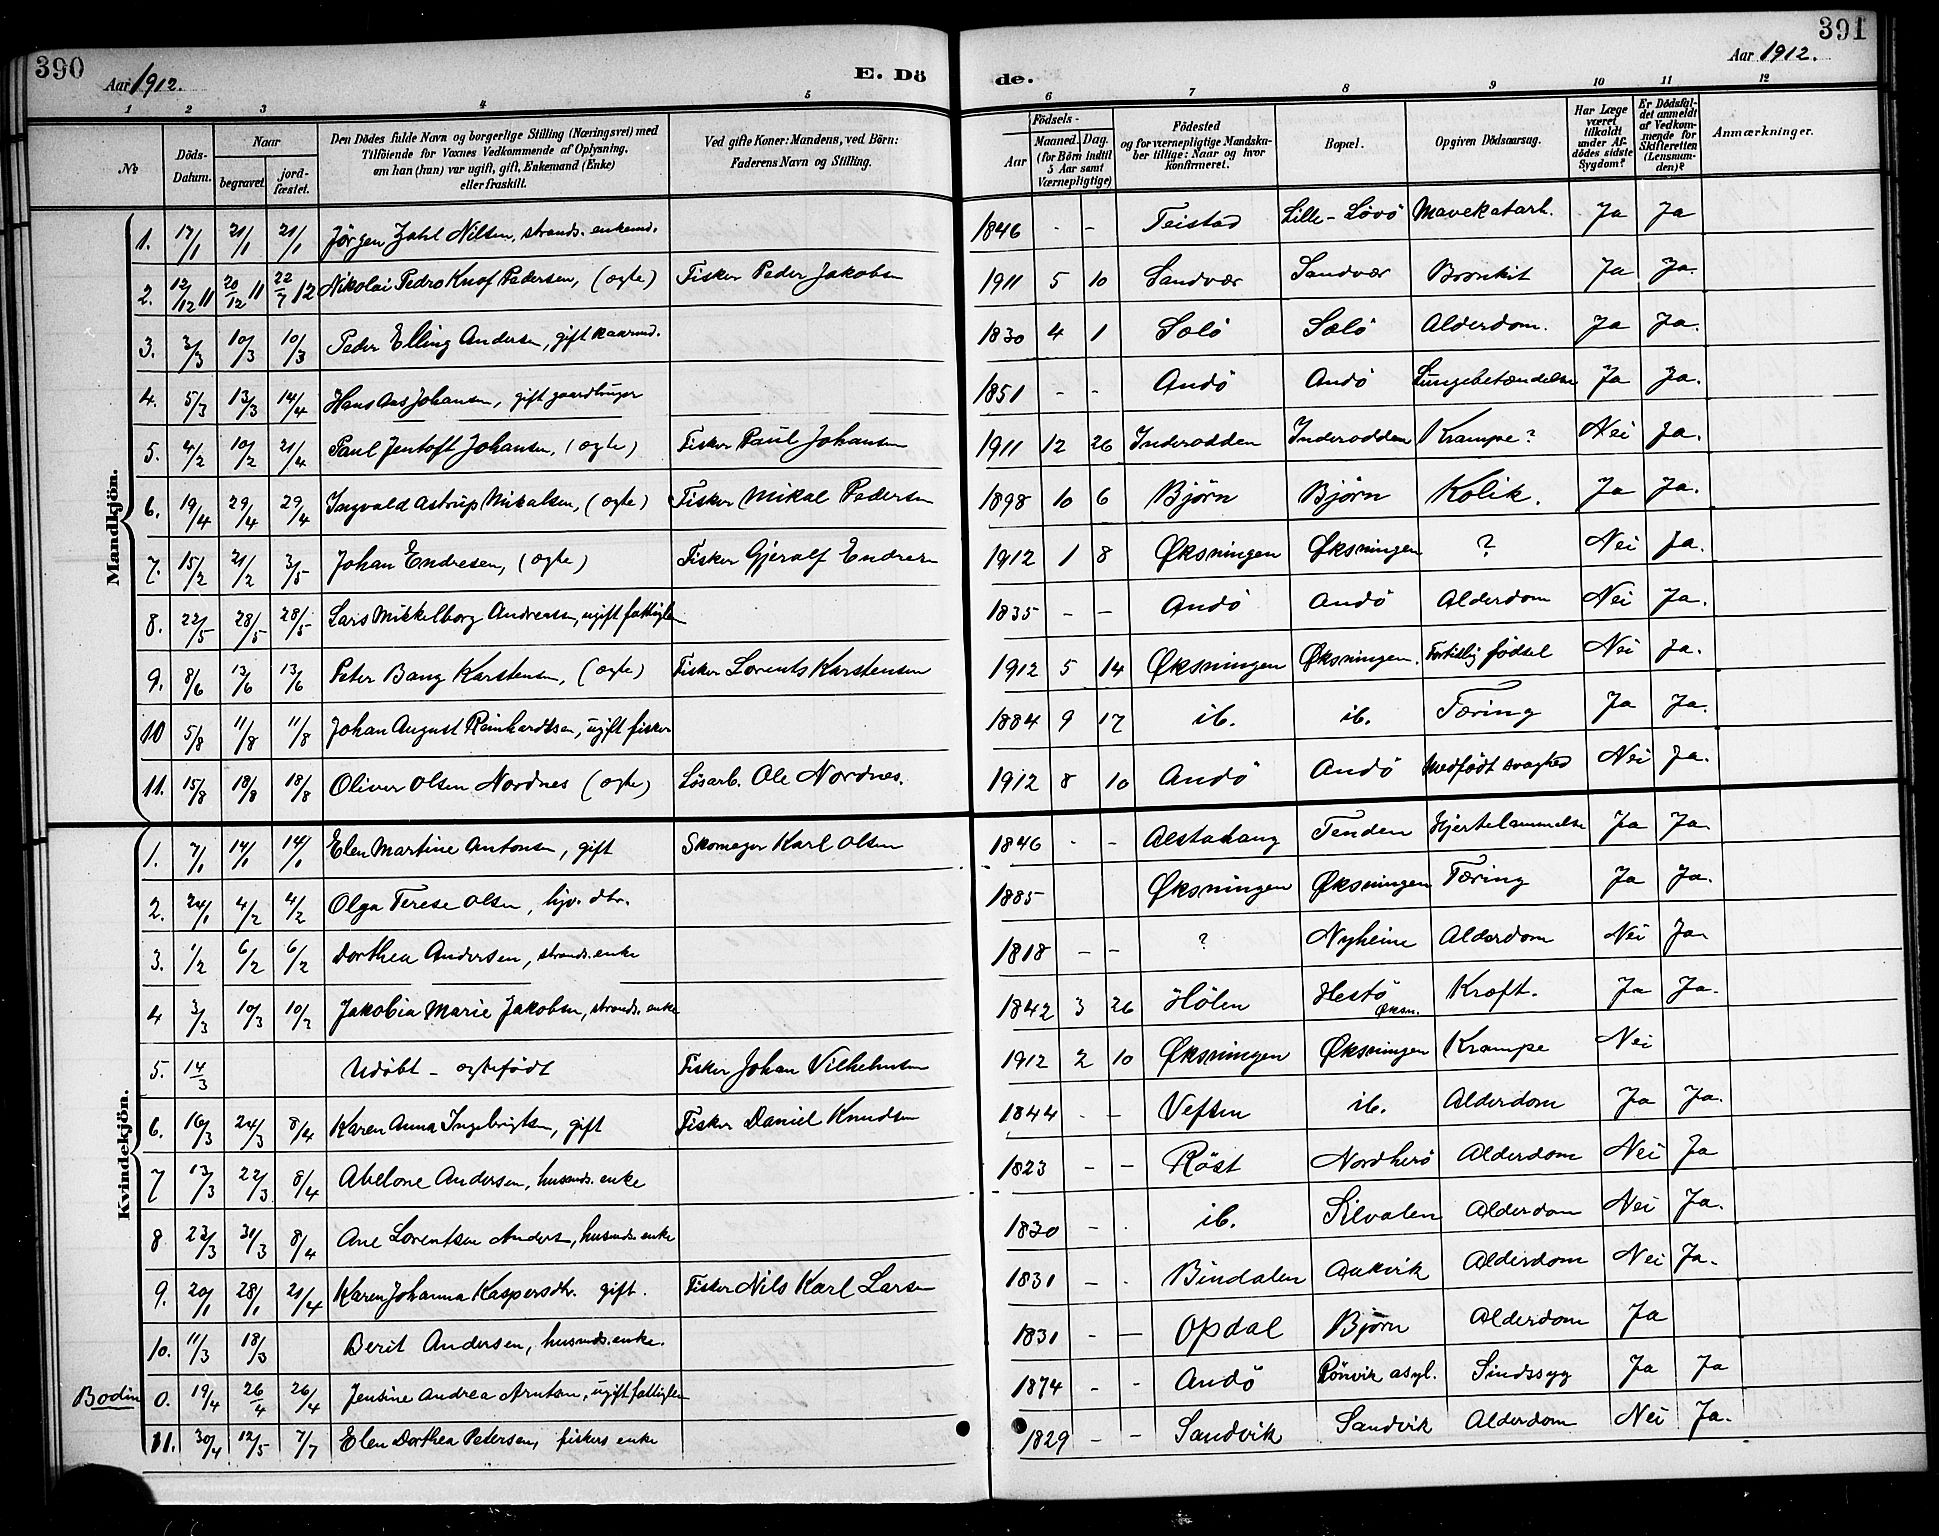 390
Aar 1912.
E. Dö
de.
Aar 1912.
391
1 2 3 4 5 6 7 8 9 10 11 12
No.
Döds-Datum.
Naar
begravet.
jord-fæstet.
Den Dödes fulde Navn og borgerlige Stilling (Næringsvei) med
Tilföiende for Voxnes Vedkommende af Oplysning,
om han (hun) var ugift, gift, Enkemand (Enke)
eller fraskilt.
Ved gifte Koner: Mandens, ved Börn:
Faderens Navn og Stilling.
Födsels-
Aar
Maaned. Dag.
(for Börn indtil
5 Aar samt
Værnepligtige)
Födested
og for værnepligtige Mandska-
ber tillige: Naar og hvor
konfirmeret.
Bopæl.
Opgiven Dödsaarsag.
Har Læge
været
tilkaldt
under Af-
dödes sidste
Sygdom?
Er Dödsfal-
det anmeldt
af Vedkom-
mende for
Skifteretten
(Lensman-
den)?
Anmærkninger.
Mandkjön.
1. 17/1 21/1 21/1 Jörgen Zahl Nilsen, strands. enkemd. 1846 - - Teistad Lille-Lövö Mavekatarh. Ja Ja
2. 12/12 11 20/12 11 22/7 12 Nikolai Pedro Knof Pedersen, (ægte) Fisker Peder Jakobsen 1911 5 10 Sandvær Sandvær Bronkit Ja Ja.
3. 3/3 10/3 10/3 Peder Elling Andersen, gift kaarmd. 1830 4 1 Sælö Sælö Alderdom. Ja Ja.
4. 5/3 13/3 14/4 Hans Aas Johansen, gift gaardbruger 1851 - - Andö Andö Lungebetændelse Ja Ja.
5. 4/2 10/2 21/4 Paul Jentoft Johansen, (ægte) Fisker Paul Johansen 1911 12 26 Inderodden Inderodden Krampe? Nei Ja.
6. 19/4 29/4 29/4 Ingvald Astrup Mikalsen, (ægte) Fisker Mikal Pedersen 1898 10 6 Bjørn Bjørn Kolik. Ja Ja.
7. 15/2 21/2 3/5 Johan Endresen, (ægte) Fisker Gjeralf Endresen 1912 1 8 Øksningen Øksningen ? Nei Ja.
8. 22/5 28/5 28/5 Lars Mikkelborg Andreassen, ugift fattiglem 1835 - - Andö Andö Alderdom Nei Ja.
9. 8/6 13/6 13/6 Peter Bang Karstensen, (ægte) Fisker Lorents Karstensen 1912 5 14 Øksningen Øksningen. Fortidlig födsel Nei Ja.
10 5/8 11/8 11/8 Johan August Reinhardtsen, ugift fisker 1884 9 17 ib. ib. Tæring Ja Ja.
11. 15/8 18/8 18/8 Oliver Olsen Nordnes (ægte) Lösarb. Ole Nordnes. 1912 8 10 Andö Andö Medfödt svaghed Nei Ja.
Kvindekjön.
1. 7/1 14/1 14/1 Elen Martine Antonsen, gift Skomager Karl Olsen 1846 - - Alstahaug Tenden Hjertelammelse Ja Ja
2. 24/1 4/2 4/2 Olga Terese Olsen, hjv. dtr. 1885 Øksningen Øksningen Tæring Ja Ja.
3. 1/2 6/2 6/2 Dorthea Andersen, strands. enke 1818 - - ? Nyheim Alderdom Nei Ja
4 3/3 10/3 10/3 Jakobia Marie Jakobsen, strands. enke 1842 3 26 Hölen Hestö Øksn. Kræft. Ja Ja.
5. 14/3 Udöbt - ægtefödt Fisker Johan Vilhelmsen 1912 2 10 Øksningen Øksningen Krampe Nei
6. 16/3 24/3 8/4 Karen Anna Ingebrigtsen, gift Fisker Daniel Knudsen 1844 - - Vefsen ib. Alderdom Ja Ja.
7 13/3 22/3 8/4 Abelone Andersen, husmds. enke 1823 - - Röst Nordherö Alderdom Nei Ja
8 23/3 31/3 8/4 Ane Lorentsen Anders, husmds. enke 1830 - - ib. Silvalen Alderdom Nei Ja.
9. 20/1 28/1 21/4 Karen Johanna Kaspersdtr. gift. Fisker Nils Karl Larsen 1831 - - Bindalen Aakvik Alderdom Nei Ja.
10. 11/3 18/3 Berit Andersen, husmds. enke. 1831 - - Opdal Bjørn Alderdom Ja
Bodin 0. 19/4 26/4 26/4 Jensine Andrea Arntsen, ugift fattiglem 1874 - - Andö Rönvik asyl. Sindssyg Ja Ja
11. 30/4 12/5 7/7 Elen Dorthea Petersen, fiskers enke 1829 - - Sandvik Sandvik Alderdom Nei Ja.